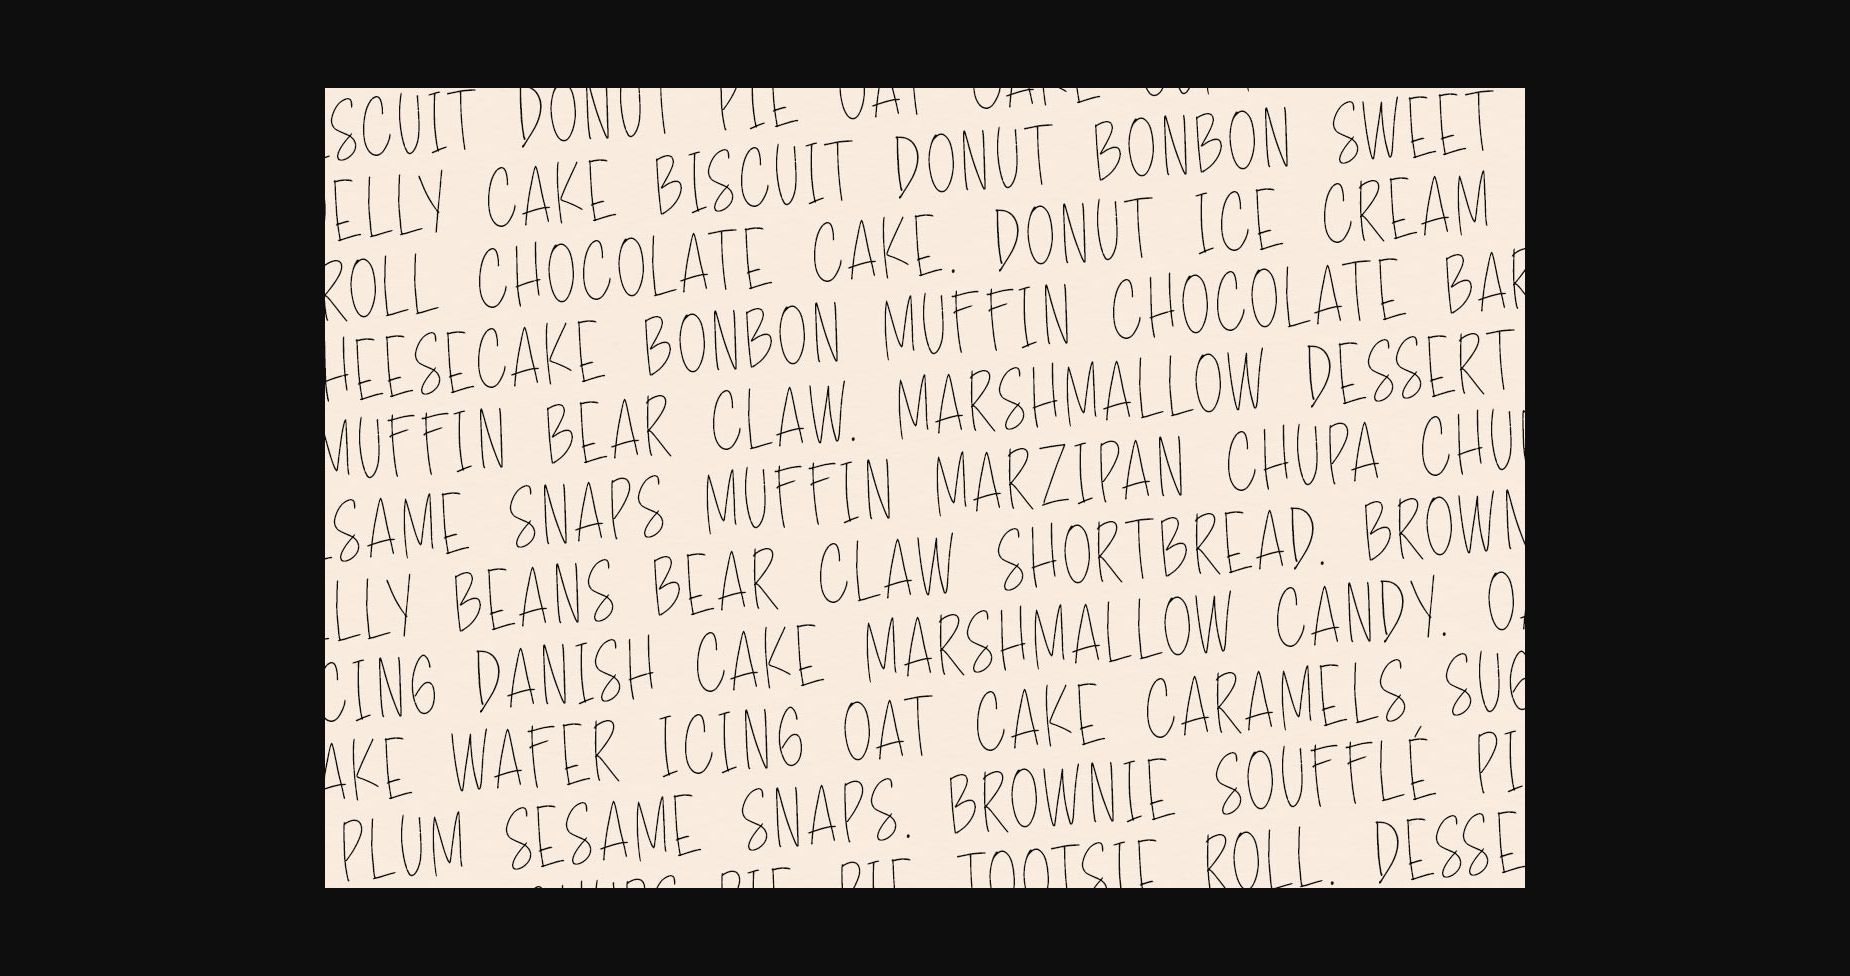 SCUIT DONUT PIE OAT CAKE
ELLY CAKE BISCUIT DONUT BONBON SWEET
ROLL CHOCOLATE CAKE. DONUT ICE CREAM
HEESECAKE BONBON MUFFIN CHOCOLATE BAR
MUFFIN BEAR CLAW. MARSHMALLOW DESSERT
SAME SNAPS MUFFIN MARZIPAN CHUPA CHU
LLY BEANS BEAR CLAW SHORTBREAD. BROWN
CING DANISH CAKE MARSHMALLOW CANDY. OA
AKE WAFER ICING OAT CAKE CARAMELS SUG
PLUM SESAME SNAPS. BROWNIE SOUFFLÉ PI
CHUPS PIE PIE TOOTSIE ROLL. DESSE